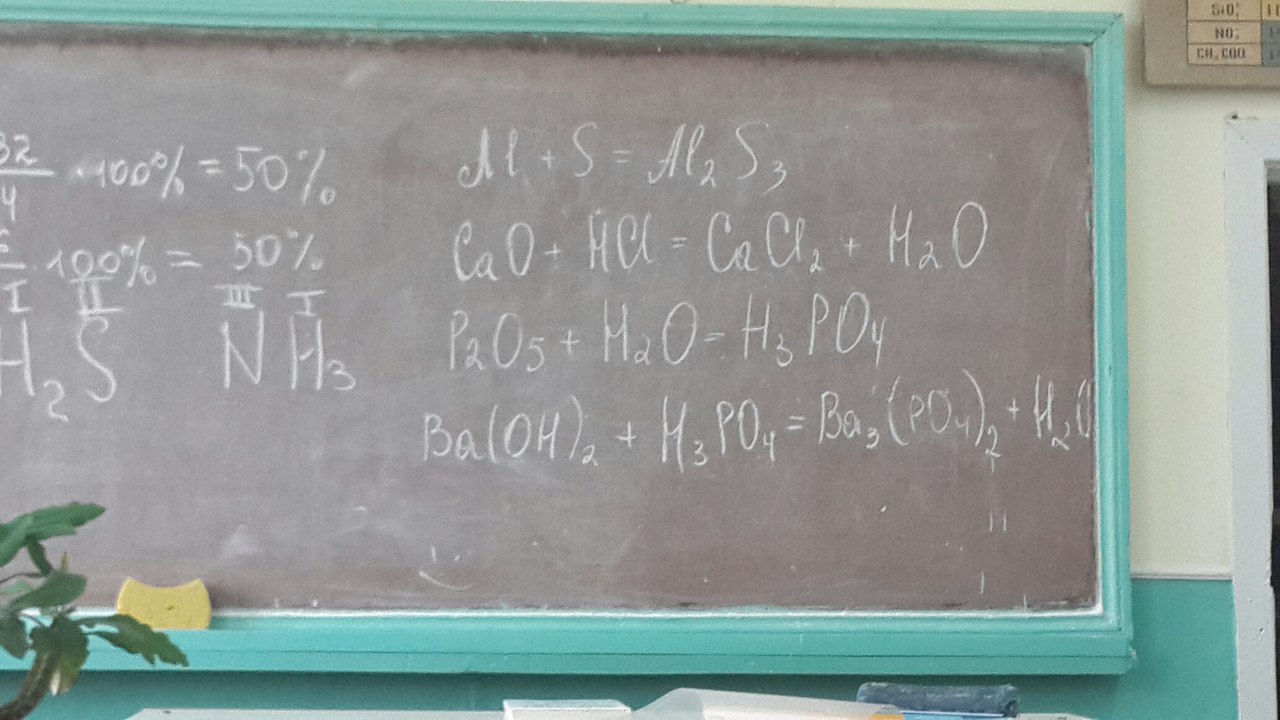 32
4 · 100% = 50%
· 100% = 50%
I II III I
H2S NH3
Al + S = Al2S3
CaO + HCl = CaCl2 + H2O
P2O5 + H2O = H3PO4
Ba(OH)2 + H3PO4 = Ba3(PO4)2 + H2O
NO3⁻
CH3COO